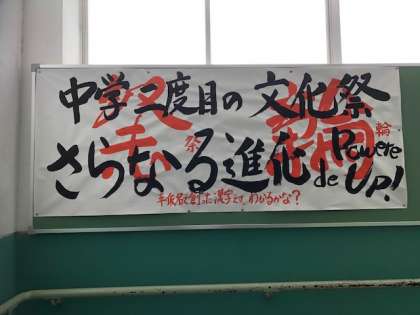 中学二度目の文化祭
さらなる進化 de Powere UP!
祭
輪
平仮名で創った漢字です。わかるかな?